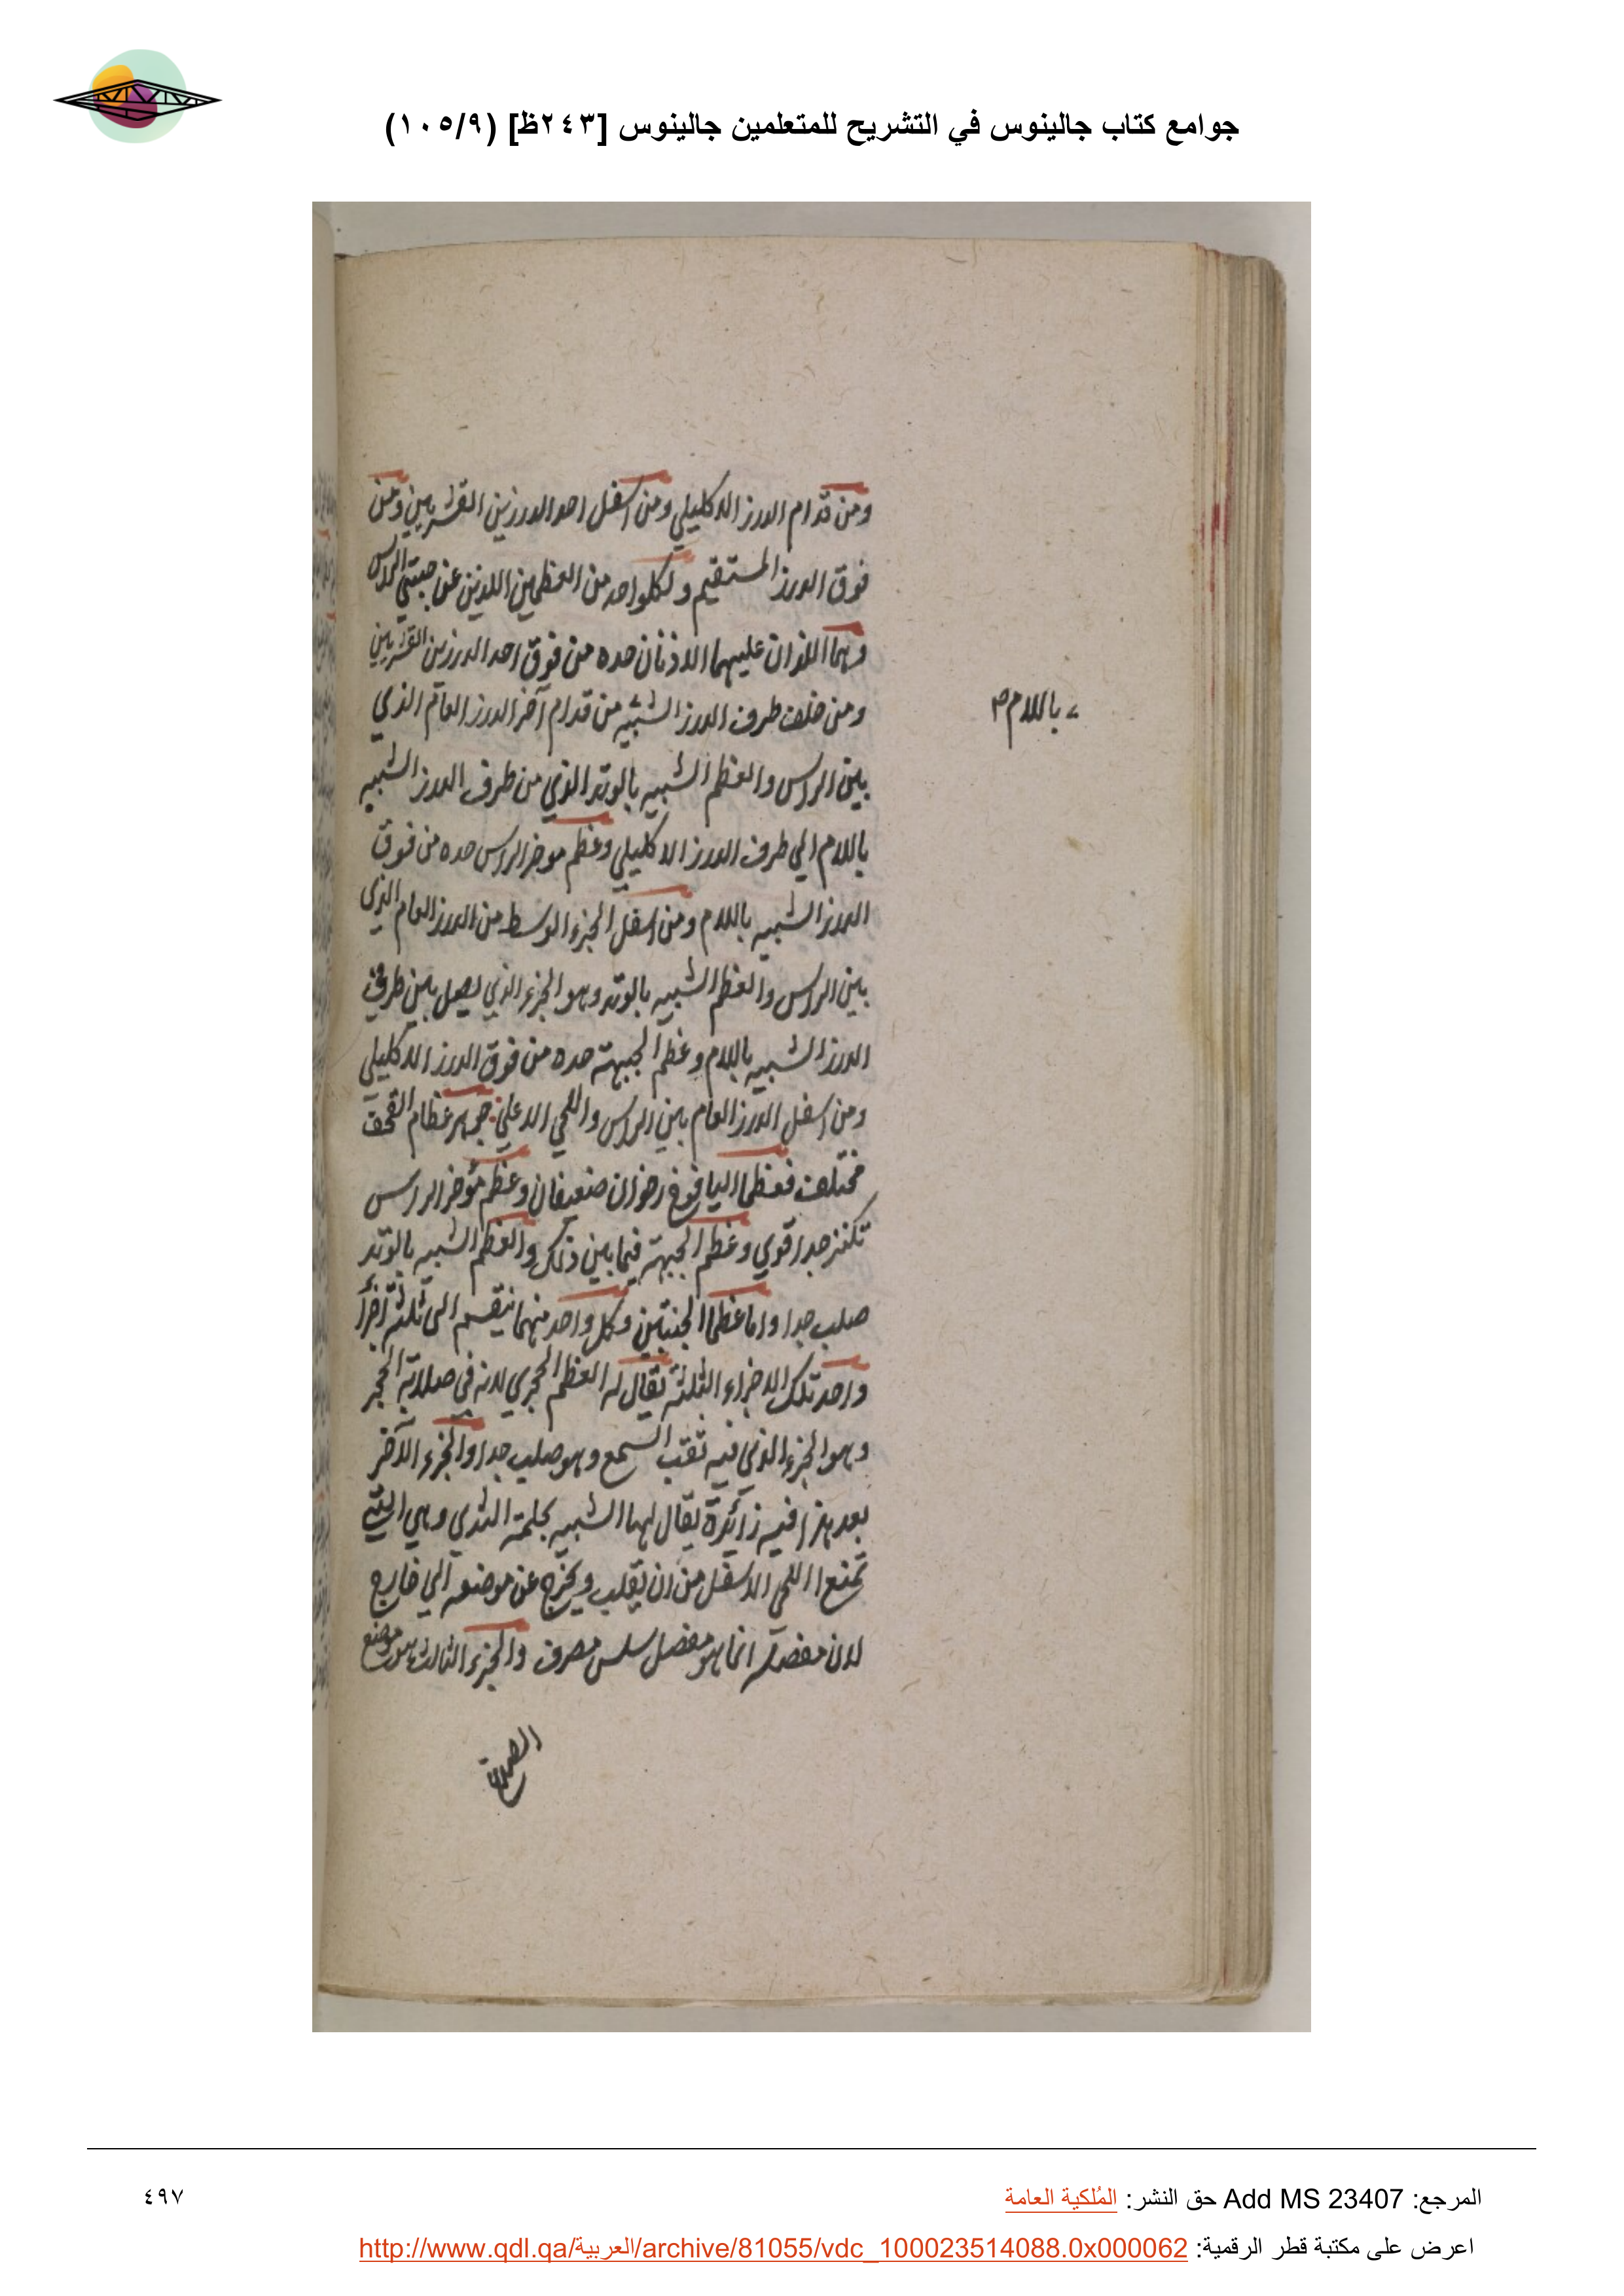 جوامع كتاب جالينوس في التشريح للمتعلمين جالينوس [٢٤٣ظ] (١٠٥/٩)
ومن قدام الدرز الاكليلي ومن اسفل احد الدرزين القشريين ومن
فوق الدرز المستقيم ولكلواحد من العظمين اللذين عن جنبتي الراس
وهما اللذان عليهما الاذنان حده من فوق احد الدرزين القشريين
ومن خلف طرف الدرز الشبيه من قدام آخر الدرز العام الذي
باللام صح
بين الراس والعظم الشبيه بالوتد الذي من طرف الدرز الشبيه
باللام الي طرف الدرز الاكليلي وعظم موخر الراس حده من فوق
الدرز الشبيه باللام ومن اسفل الجزء الوسط من الدرز العام الذي
بين الراس والعظم الشبيه بالوتد وهو الجزء الذي يصل بين طرفي
الدرز الشبيه باللام وعظم الجبهة حده من فوق الدرز الاكليلي
ومن اسفل الدرز العام بين الراس واللحي الاعلي جوهر عظام القحف
مختلف فعظما اليافوخ رخوان ضعيفان وعظم مؤخر الراس
تكنز جدا قوي وعظم الجبهة فيما بين ذلك والعظم الشبيه بالوتد
صلب جدا واما عظما الجنبتين وكل واحد منهما ينقسم الى ثلثة اجزا
واحد تلك الاجزاء الثلثة يقال له العظم الحجري لانه في صلابة الحجر
وهو الجزء الذي فيه ثقب السمع وهو صلب جدا والجزء الآخر
بعد هذا فيه زائدة يقال لها الشبيه بحلمة الثدي وهي التي
تمنع اللحي الاسفل من ان يقلب ويخرج عن موضعه الي خارج
لان مفصله انما هو مفصل سلس مصرف والجزء الثالث هو موضع
المرجع: Add MS 23407 حق النشر: المُلكية العامة
٤٩٧
اعرض على مكتبة قطر الرقمية: http://www.qdl.qa/العربية/archive/81055/vdc_100023514088.0x000062